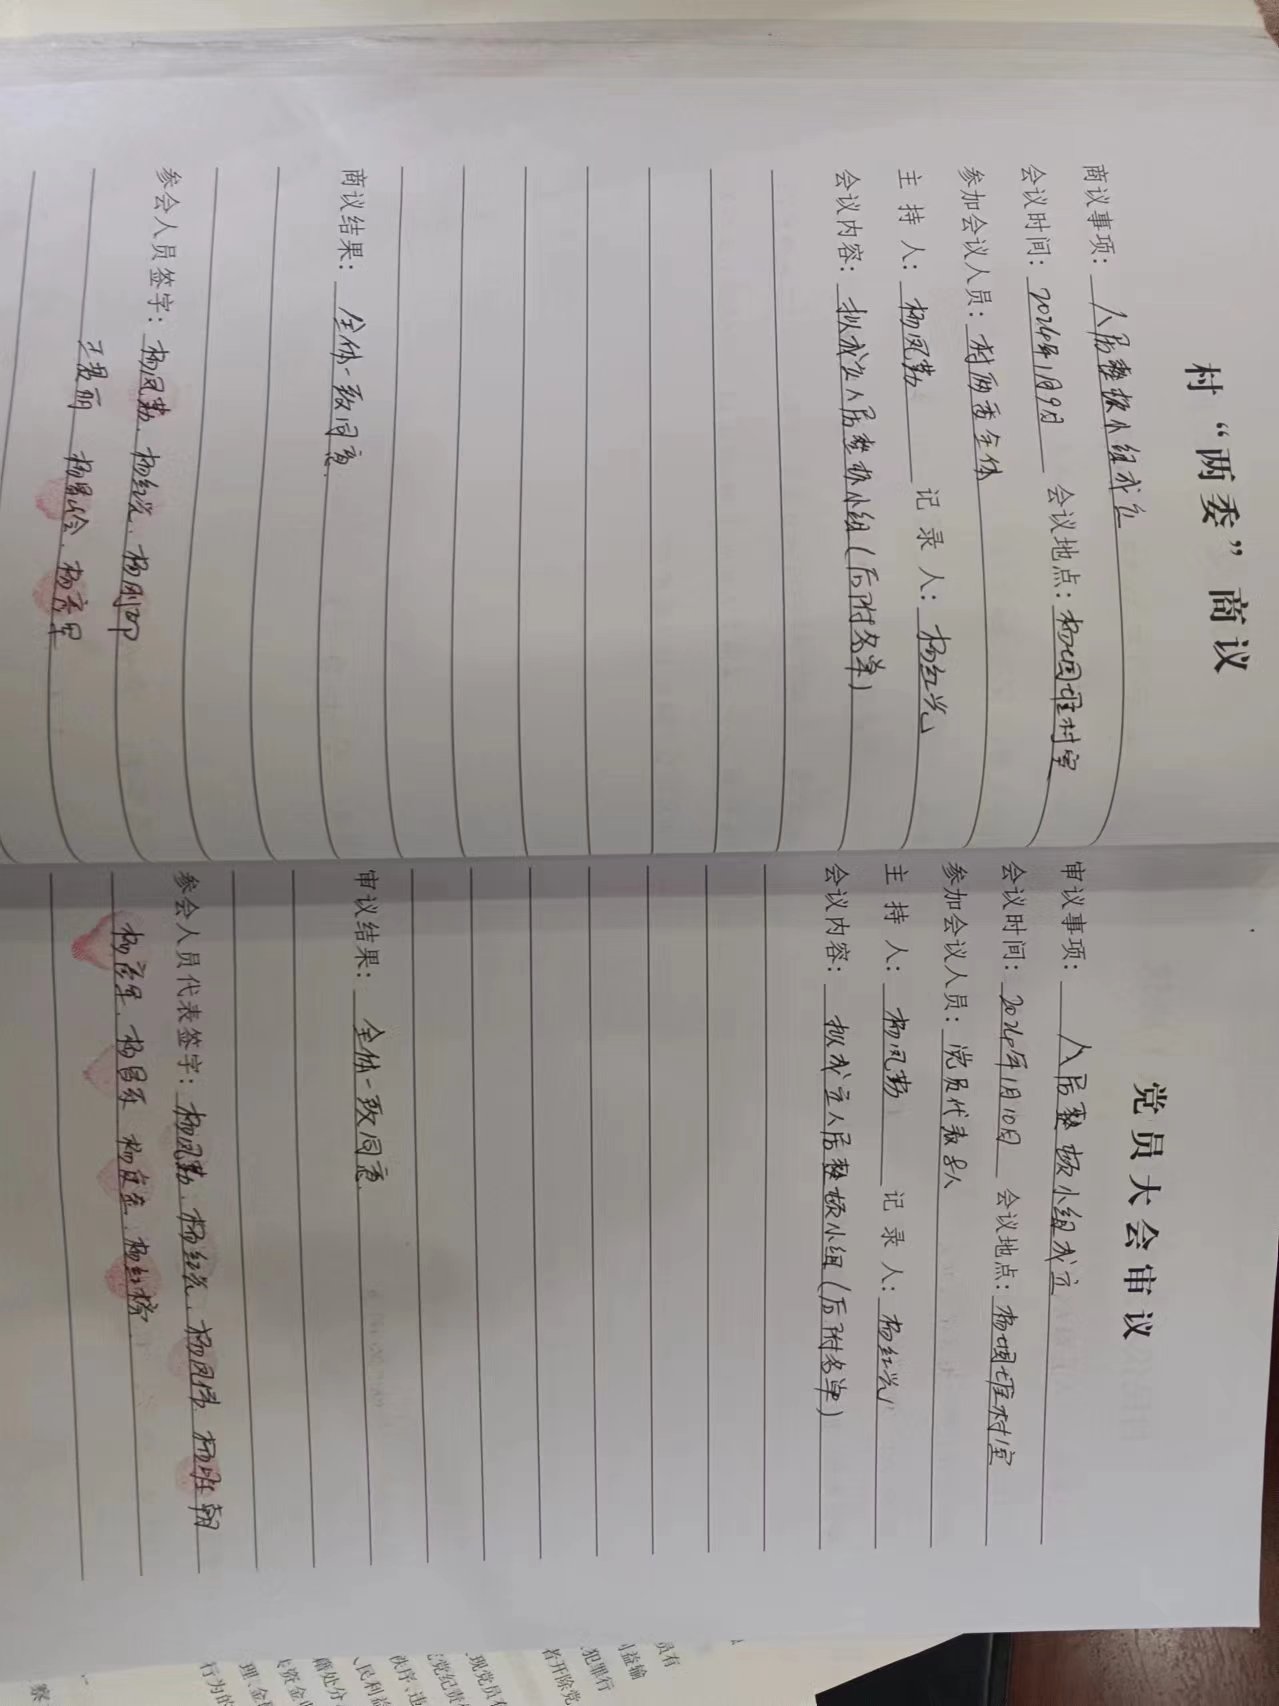 村“两委”商议
商议事项：人居整顿小组成立
会议时间：2024年1月9日 会议地点：杨堌堆村室
参加会议人员：村两委全体
主持人：杨凤勤 记录人：杨红光
会议内容：拟成立人居整顿小组（后附名单）
商议结果：全体一致同意.
参会人员签字：杨凤勤、杨红光、杨刚印
丽 杨 岭、杨彦军
党员大会审议
审议事项：人居整顿小组成立
会议时间：2024年1月10日 会议地点：杨堌堆村室
参加会议人员：党员代表8人
主持人：杨凤勤 记录人：杨红光
会议内容：拟成立人居整顿小组（后附名单）
审议结果：全体一致同意.
参会人员代表签字：杨凤勤、杨红光、杨凤伟 杨 朝
杨彦军、杨昌 杨 、杨红
员有
利益输
犯罪行
者开除党
现党员
党纪责
秩序、违
人民利益
籍处分
行为的
察